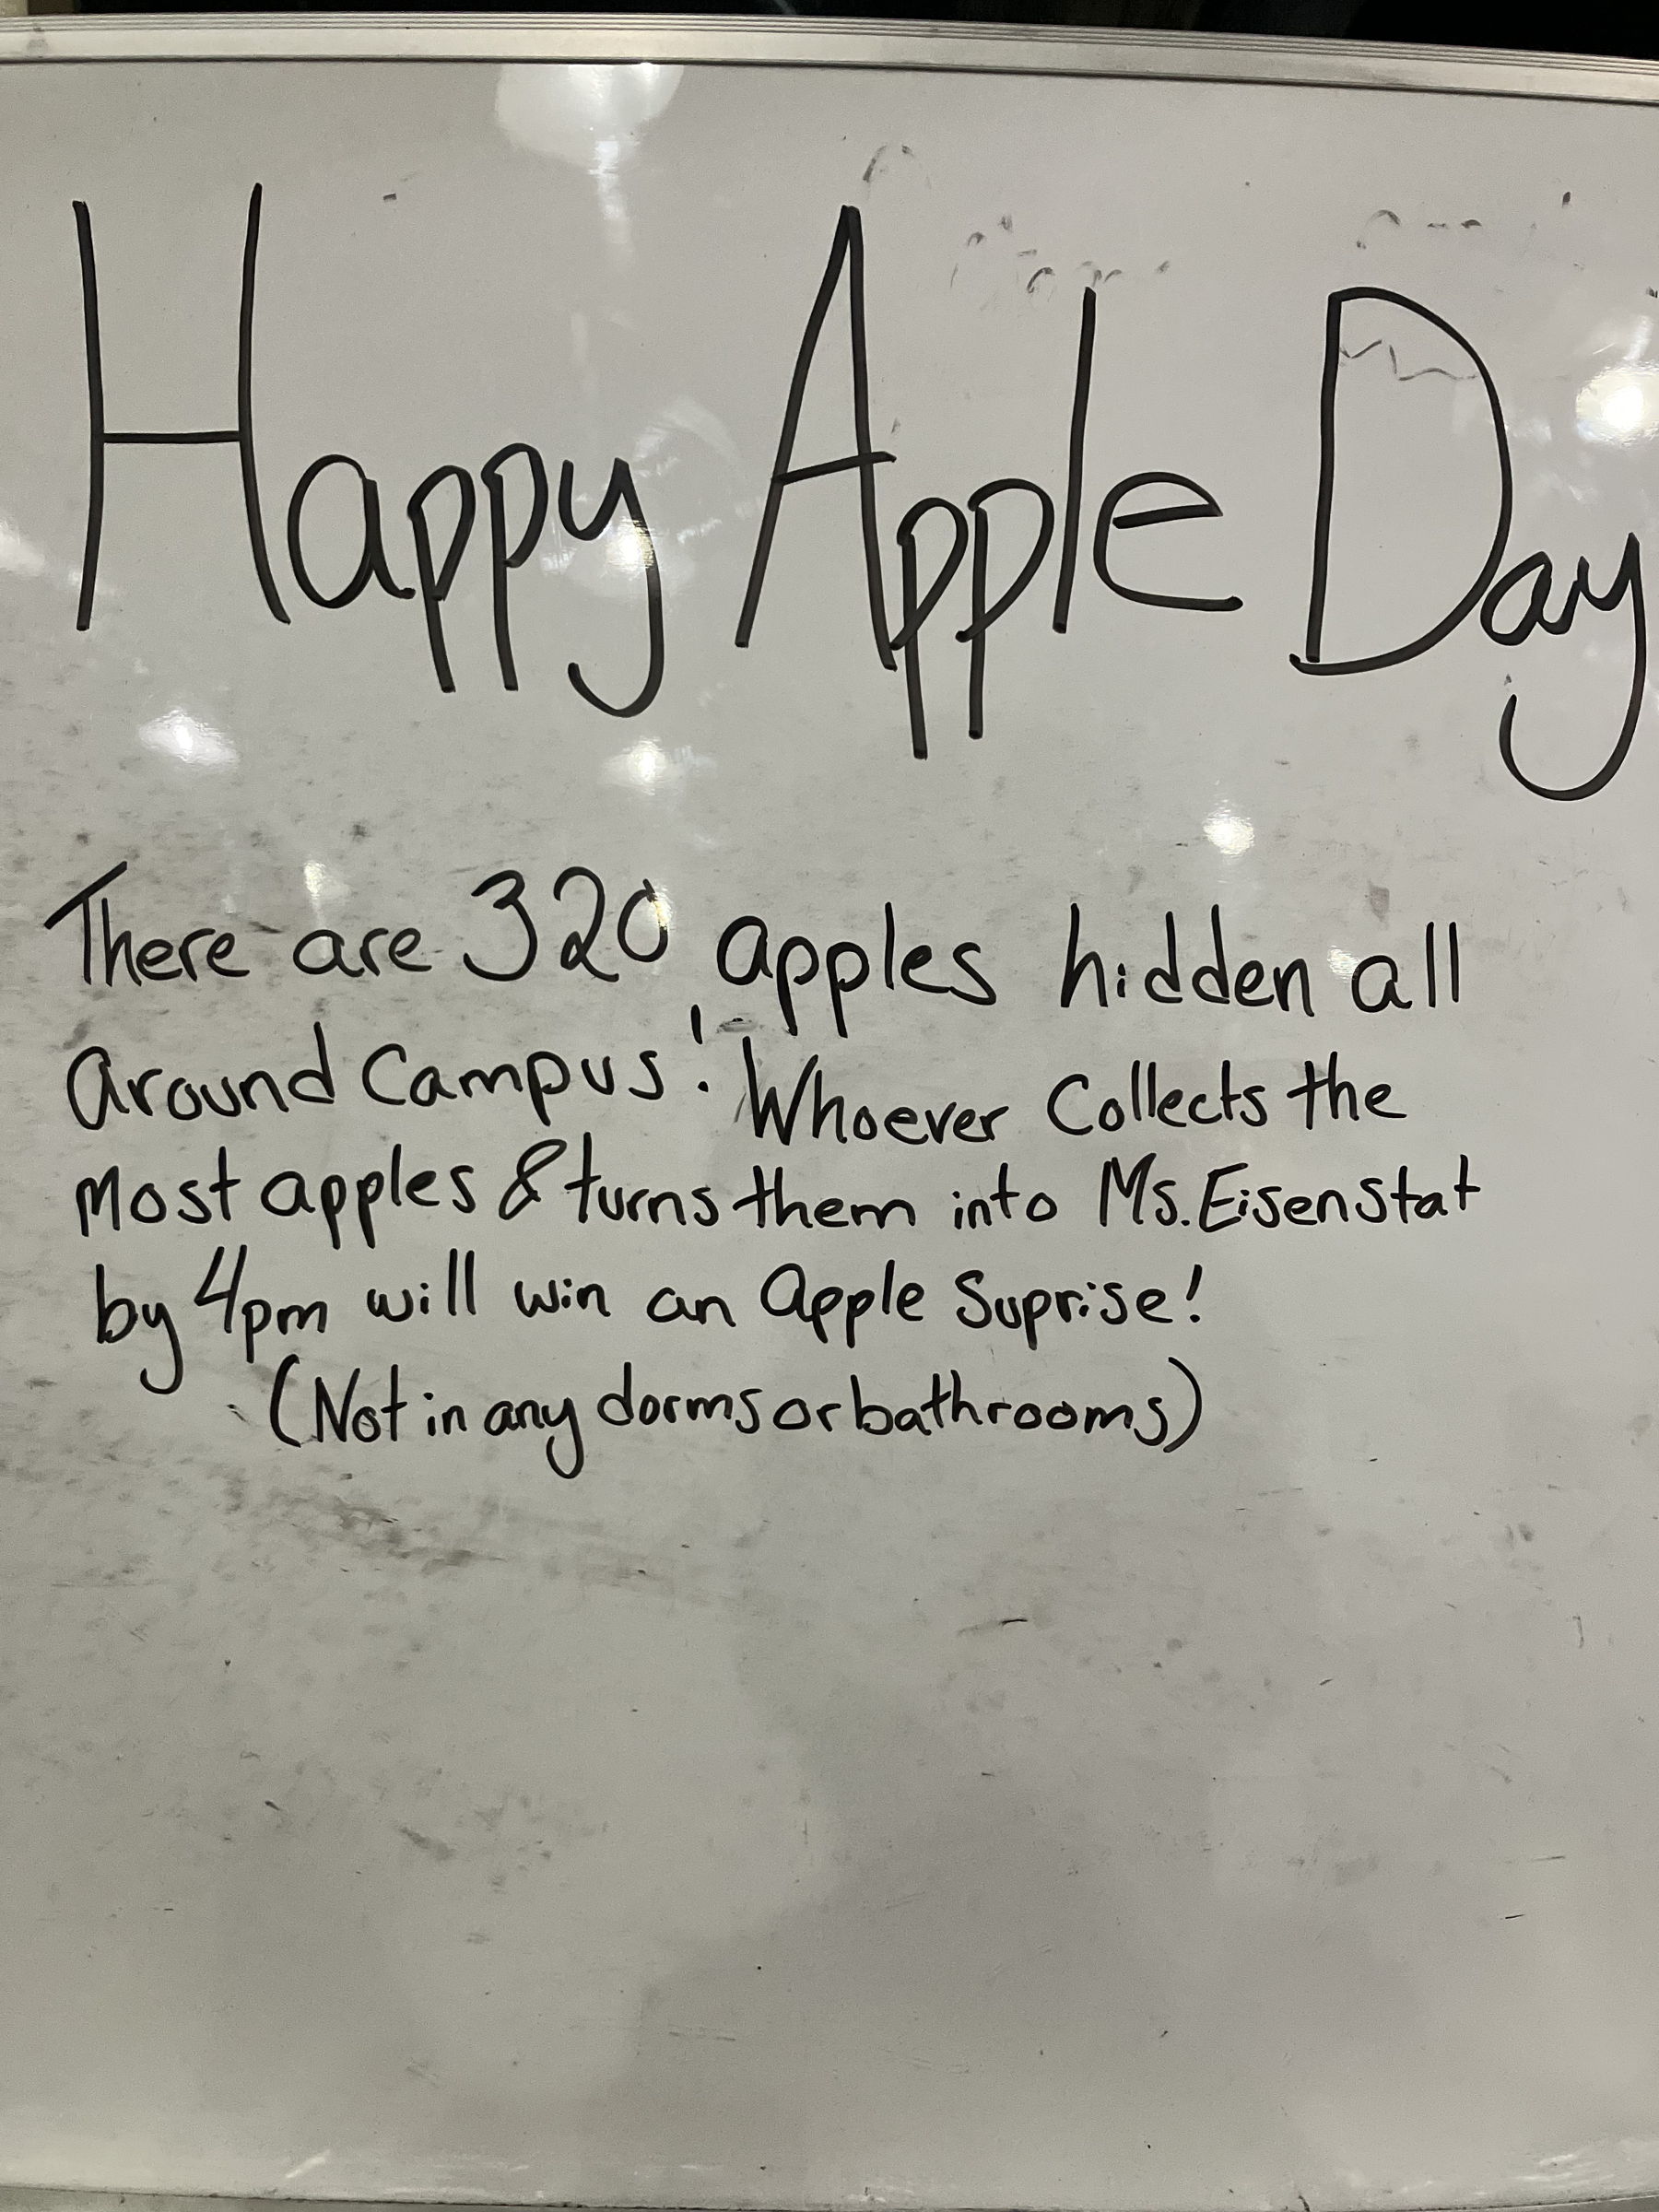 Happy Apple Day
There are 320 apples hidden all
around campus! Whoever collects the
most apples & turns them into Ms. Eisenstat
by 4pm will win an Apple Suprise!
(Not in any dorms or bathrooms)